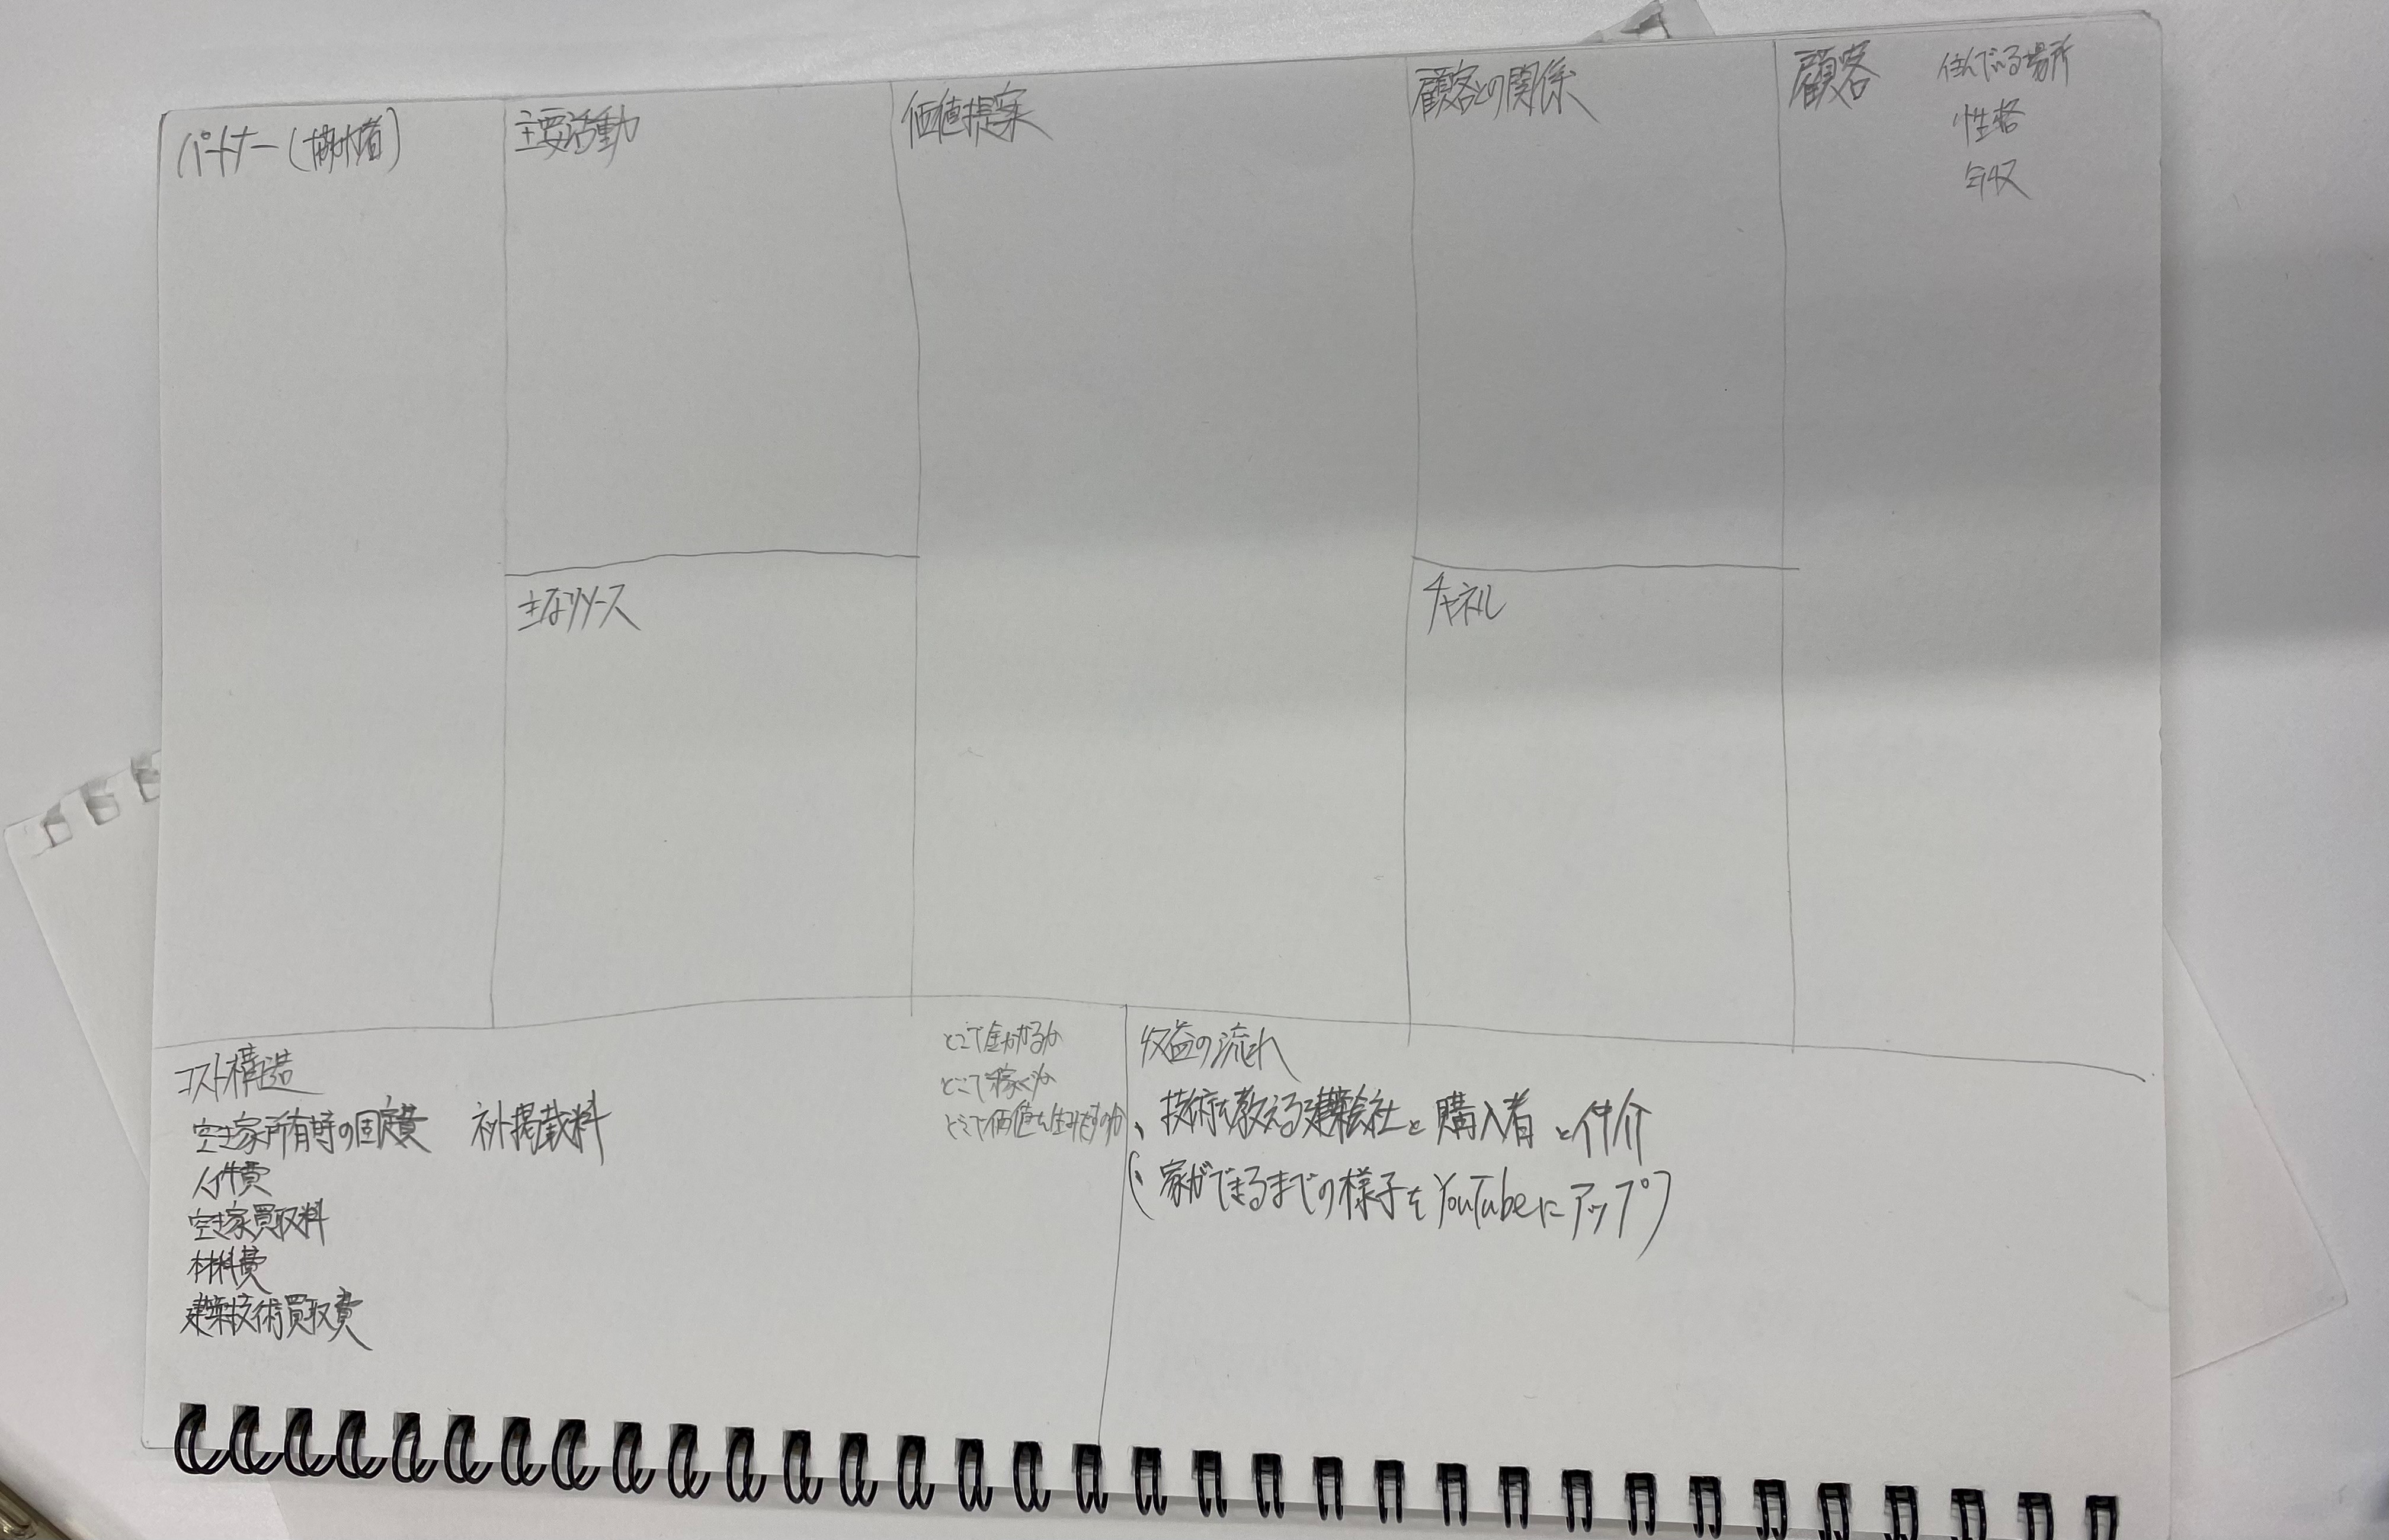 パートナー(協力者)
主要活動
価値提案
顧客との関係
顧客
住んでいる場所
性格
年収
主なリソース
チャネル
コスト構造
空き家所有時の固定費 ネット掲載料
人件費
空き家買取料
材料費
建築技術買取費
どこで金かかるか
どこで稼ぐか
どこで価値を生みだすのか
収益の流れ
、技術を教える建築会社と購入者と仲介
(、家ができるまでの様子をYouTubeにアップ)